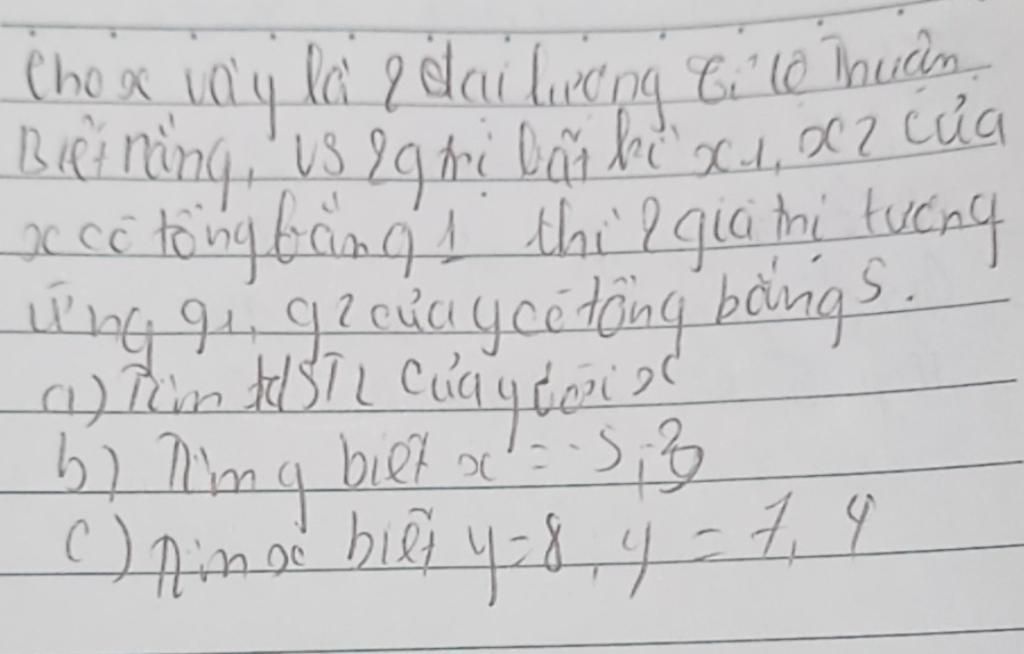 Cho x và y là 2 đại lượng tỉ lệ thuận.
Biết rằng, vs 2 g trị bất kì x1, x2 của
x có tổng bằng 1 thì 2 giá trị tương
ứng y1, y2 của y có tổng bằng 5.
a) Tìm HSTL của y đối x
b) Tìm y biết x = -5;
c) Tìm x biết y = 8, y = 7,4